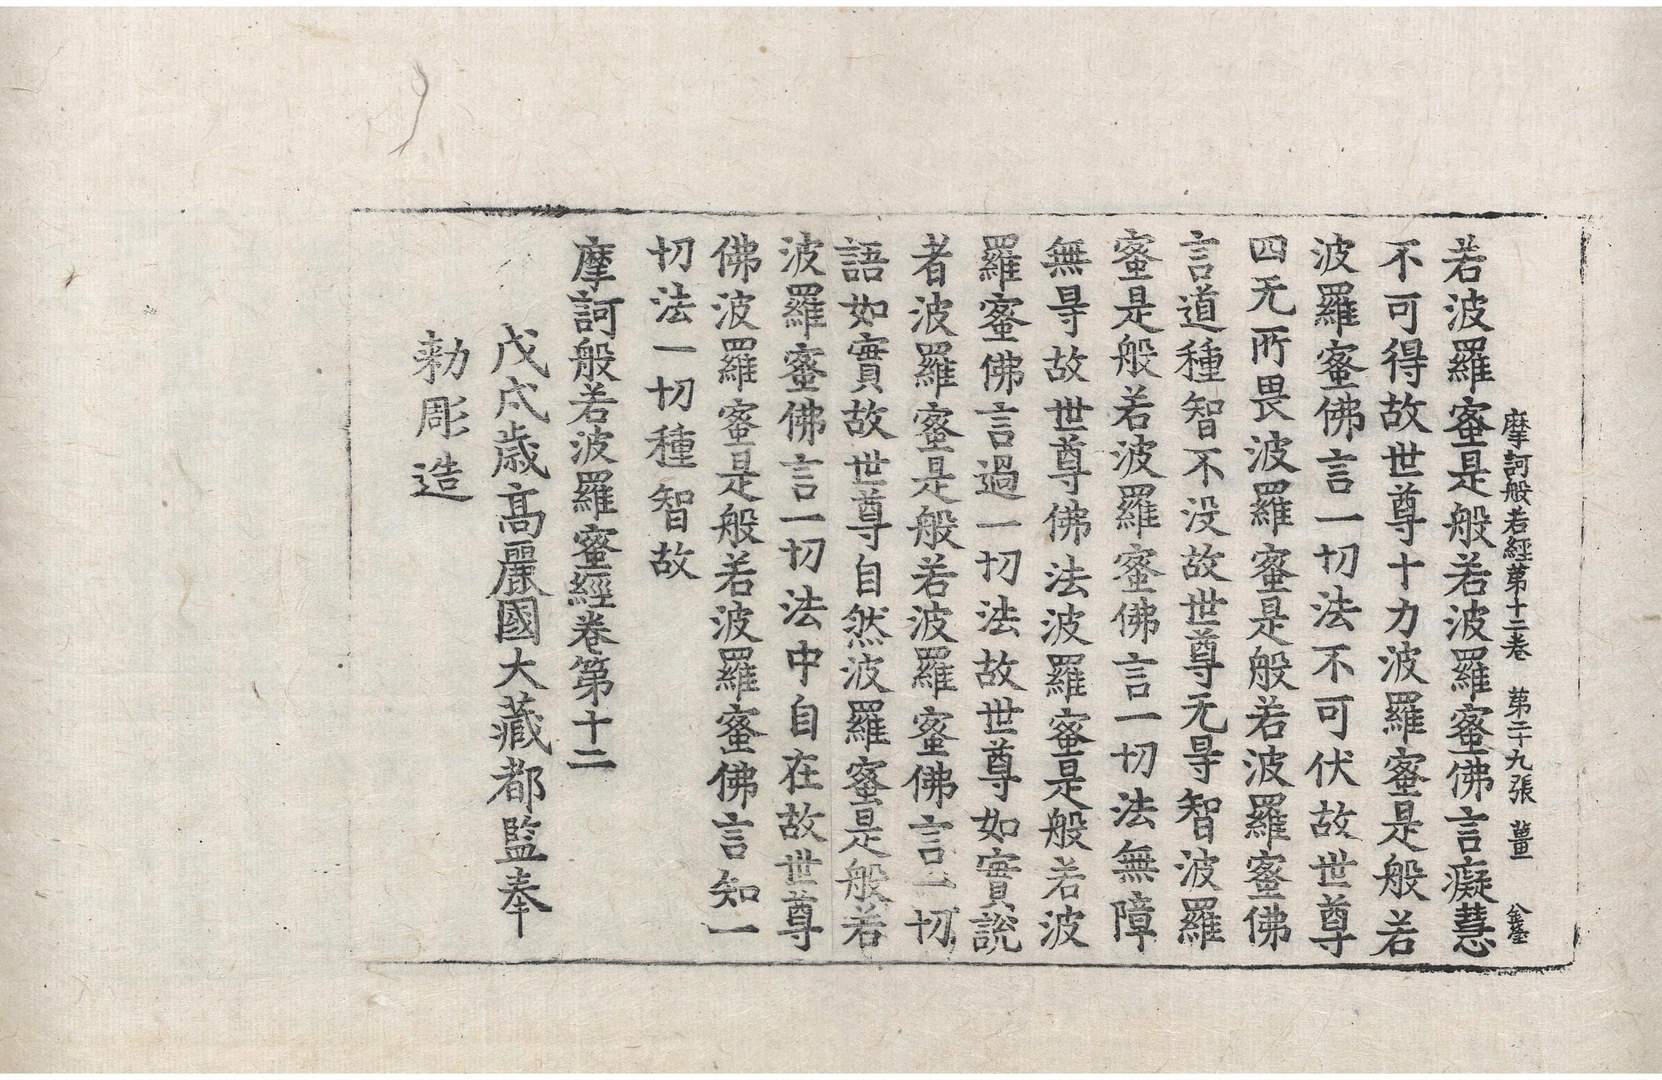 摩訶般若經第十二卷 第二十九張 薑
若波羅蜜是般若波羅蜜佛言癡慧
不可得故世尊十力波羅蜜是般若
波羅蜜佛言一切法不可伏故世尊
四无所畏波羅蜜是般若波羅蜜佛
言道種智不没故世尊无㝵智波羅
蜜是般若波羅蜜佛言一切法無障
無㝵故世尊佛法波羅蜜是般若波
羅蜜佛言過一切法故世尊如實說
者波羅蜜是般若波羅蜜佛言一切
語如實故世尊自然波羅蜜是般若
波羅蜜佛言一切法中自在故世尊
佛波羅蜜是般若波羅蜜佛言知一
切法一切種智故
摩訶般若波羅蜜經卷第十二
戊戌歲高麗國大藏都監奉
勅彫造